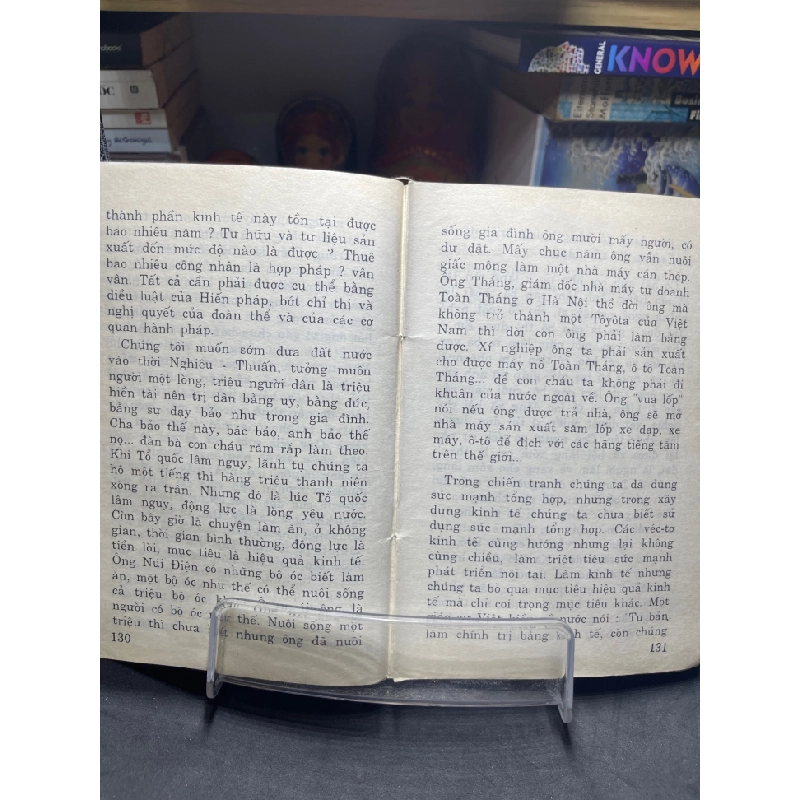 thành phần kinh tế này tồn tại được
bao nhiêu năm ? Tư hữu và tư liệu sản
xuất đến mức độ nào là được ? Thuê
bao nhiêu công nhân là hợp pháp ? vân
vân. Tất cả cần phải được cụ thể bằng
điều luật của Hiến pháp, bớt chỉ thị và
nghị quyết của đoàn thể và của các cơ
quan hành pháp.
Chúng tôi muốn sớm đưa đất nước
vào thời Nghiêu - Thuấn, tưởng muôn
người một lòng, triệu người dân là triệu
hiền tài nên trị dân bằng uy, bằng đức,
bằng sự dạy bảo như trong gia đình.
Cha bảo thế này, bác bảo, anh bảo thế
nọ... đàn bà con cháu răm rắp làm theo.
Khi Tổ quốc lâm nguy, lãnh tụ chúng ta
hô một tiếng thì hàng triệu thanh niên
xông ra trận. Nhưng đó là lúc Tổ quốc
lâm nguy, động lực là lòng yêu nước.
Còn bây giờ là chuyện làm ăn, ở không
gian, thời gian bình thường, động lực là
tiền lời, mục tiêu là hiệu quả kinh tế.
Ông Núi Điện có những bộ óc biết làm
ăn, một bộ óc như thế có thể nuôi sống
cả triệu bộ óc ông là
người có bộ óc thế. Nuôi sống một
triệu thì chưa nhưng ông đã nuôi
130
sống gia đình ông mười mấy người, có
dư dật. Mấy chục năm ông vẫn nuôi
giấc mộng làm một nhà máy cán thép.
Ông Thắng, giám đốc nhà máy tư doanh
Toàn Thắng ở Hà Nội thề đời ông mà
không trở thành một Tôyôta của Việt
Nam thì đời con ông phải làm bằng
được. Xí nghiệp ông ta phải sản xuất
cho được máy nổ Toàn Thắng, ô tô Toàn
Thắng... để con cháu ta không phải đi
khuân của nước ngoài về. Ông "vua lốp"
nói nếu ông được trả nhà, ông sẽ mở
nhà máy sản xuất săm lốp xe đạp, xe
máy, ô-tô để địch với các hãng tiếng tăm
trên thế giới...
Trong chiến tranh chúng ta đã dùng
sức mạnh tổng hợp, nhưng trong xây
dựng kinh tế chúng ta chưa biết sử
dụng sức mạnh tổng hợp. Các véc-tơ
kinh tế cùng hướng nhưng lại không
cùng chiều, làm triệt tiêu sức mạnh
phát triển nội tại. Làm kinh tế nhưng
chúng ta bỏ qua mục tiêu hiệu quả kinh
tế mà chỉ coi trọng mục tiêu khác. Một
nước nói : "Tư bản
làm chính trị bằng kinh tế, còn chúng
131
GENERAL KNOW